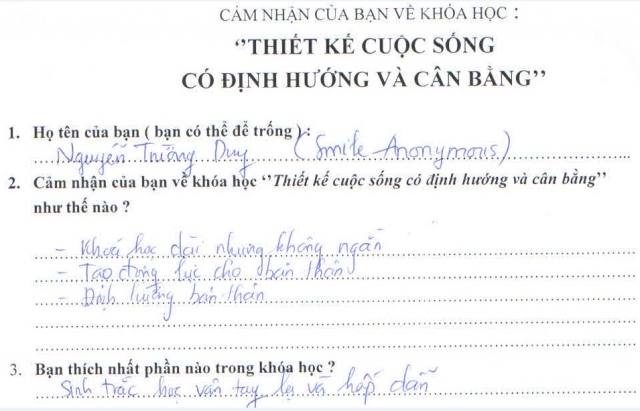 CẢM NHẬN CỦA BẠN VỀ KHÓA HỌC :
‘’THIẾT KẾ CUỘC SỐNG
CÓ ĐỊNH HƯỚNG VÀ CÂN BẰNG’’
1. Họ tên của bạn ( bạn có thể để trống ) :
Nguyễn Trường Duy ( Smile Anonymous )
2. Cảm nhận của bạn về khóa học ‘’Thiết kế cuộc sống có định hướng và cân bằng’’
như thế nào ?
- Khoá học dài nhưng không ngắn
- Tạo động lực cho bản thân
- Định hướng bản thân
3. Bạn thích nhất phần nào trong khóa học ?
Sinh trắc học vân tay lạ và hấp dẫn